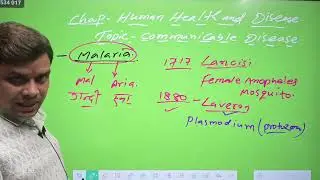 534 017
Chap- Human Health and Disease
Topic- Communicable Disease
Malaria
Mal Aria
गन्दी हवा
1717 Lancisi
Female Anopheles
Mosquito.
1880 - Laveran
Plasmodium (protozoa)